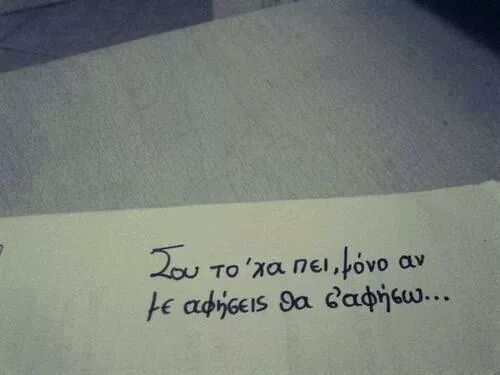 Σου το 'χα πει, μόνο αν
με αφήσεις θα σ'αφήσω...